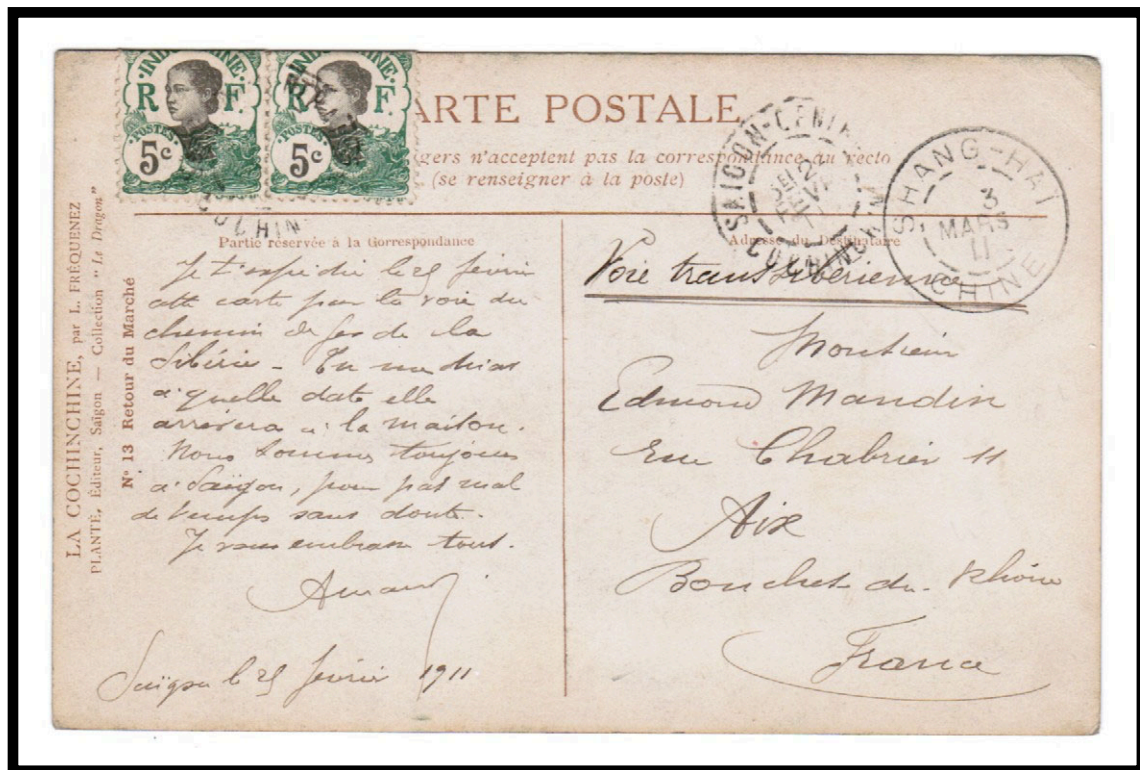 INDOCHINE
R F
POSTES
5c
INDOCHINE
R F
POSTES
5c
CARTE POSTALE
gers n'acceptent pas la correspondance au recto
(se renseigner à la poste)
SAIGON-CENTRAL
COCHINCHINE
SHANG-HAI
3
MARS
11
CHINE
COCHIN
LA COCHINCHINE, par L. FRÉQUENEZ
PLANTÉ, Éditeur, Saïgon — Collection "Le Dragon"
N° 13 Retour du Marché
Partie réservée à la Correspondance
Je t'expédie le 25 février
cette carte par la voie du
chemin de fer de la
Sibérie - Tu me diras
à quelle date elle
arrivera à la maison.
Nous sommes toujours
à Saïgon, pour pas mal
de temps sans doute.
Je vous embrasse tous.
Saïgon le 25 février 1911
Adresse du Destinataire
Voie transsibérienne
Monsieur
Edmond Mandin
Rue Chabrier 11
Aix
Bouches-du-Rhône
France